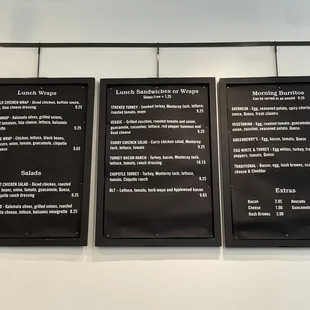 Lunch Wraps
CHICKEN WRAP - Diced chicken, buffalo sauce,
blue cheese dressing 9.25
WRAP - Kalamata olives, grilled onions,
tomatoes, feta cheese, lettuce, balsamic
9.25
WRAP - Chicken, lettuce, black beans,
onions, tomato, guacamole, chipotle
9.25
Salads
CHICKEN SALAD - Diced chicken, roasted
bean, onion, tomato, guacamole, Queso
ranch dressing 9.25
- Kalamata olives, grilled onions, roasted
feta cheese, lettuce, balsamic vinaigrette
9.25
Lunch Sandwiches or Wraps
Gluten free + 1.25
STACKED TURKEY - Smoked turkey, Monterey Jack, lettuce,
roasted tomato, mayo 9.25
VEGGIE - Grilled zucchini, roasted tomato and onion,
guacamole, cucumber, lettuce, red pepper hummus and
Goat cheese 9.25
CURRY CHICKEN SALAD - Curry chicken salad, Monterey
Jack, lettuce, tomato 9.25
TURKEY BACON RANCH - Turkey, bacon, Monterey Jack,
lettuce, tomato, ranch dressing 10.15
CHIPOTLE TURKEY - Turkey, Monterey Jack, lettuce,
tomato, Chipotle ranch 9.25
BLT - Lettuce, tomato, herb mayo and Applewood bacon
8.65
Morning Burritos
Can be served as an omelet
DAYBREAK - Egg, seasoned potato, spicy
sauce, Queso, fresh cilantro
VEGETARIAN - Egg, roasted tomato, guacamole
onion, zucchini, seasoned potato, Queso
GREENBERRY'S - Egg, bacon, roasted tomato,
Queso
EGG WHITE & TURKEY - Egg white, turkey,
peppers, tomato, Queso
TRADITIONAL - Bacon, egg, fresh
& Cheddar
Extras
Bacon 2.65 Avocado
Cheese 1.00 Guacamole
Hash Browns 3.00